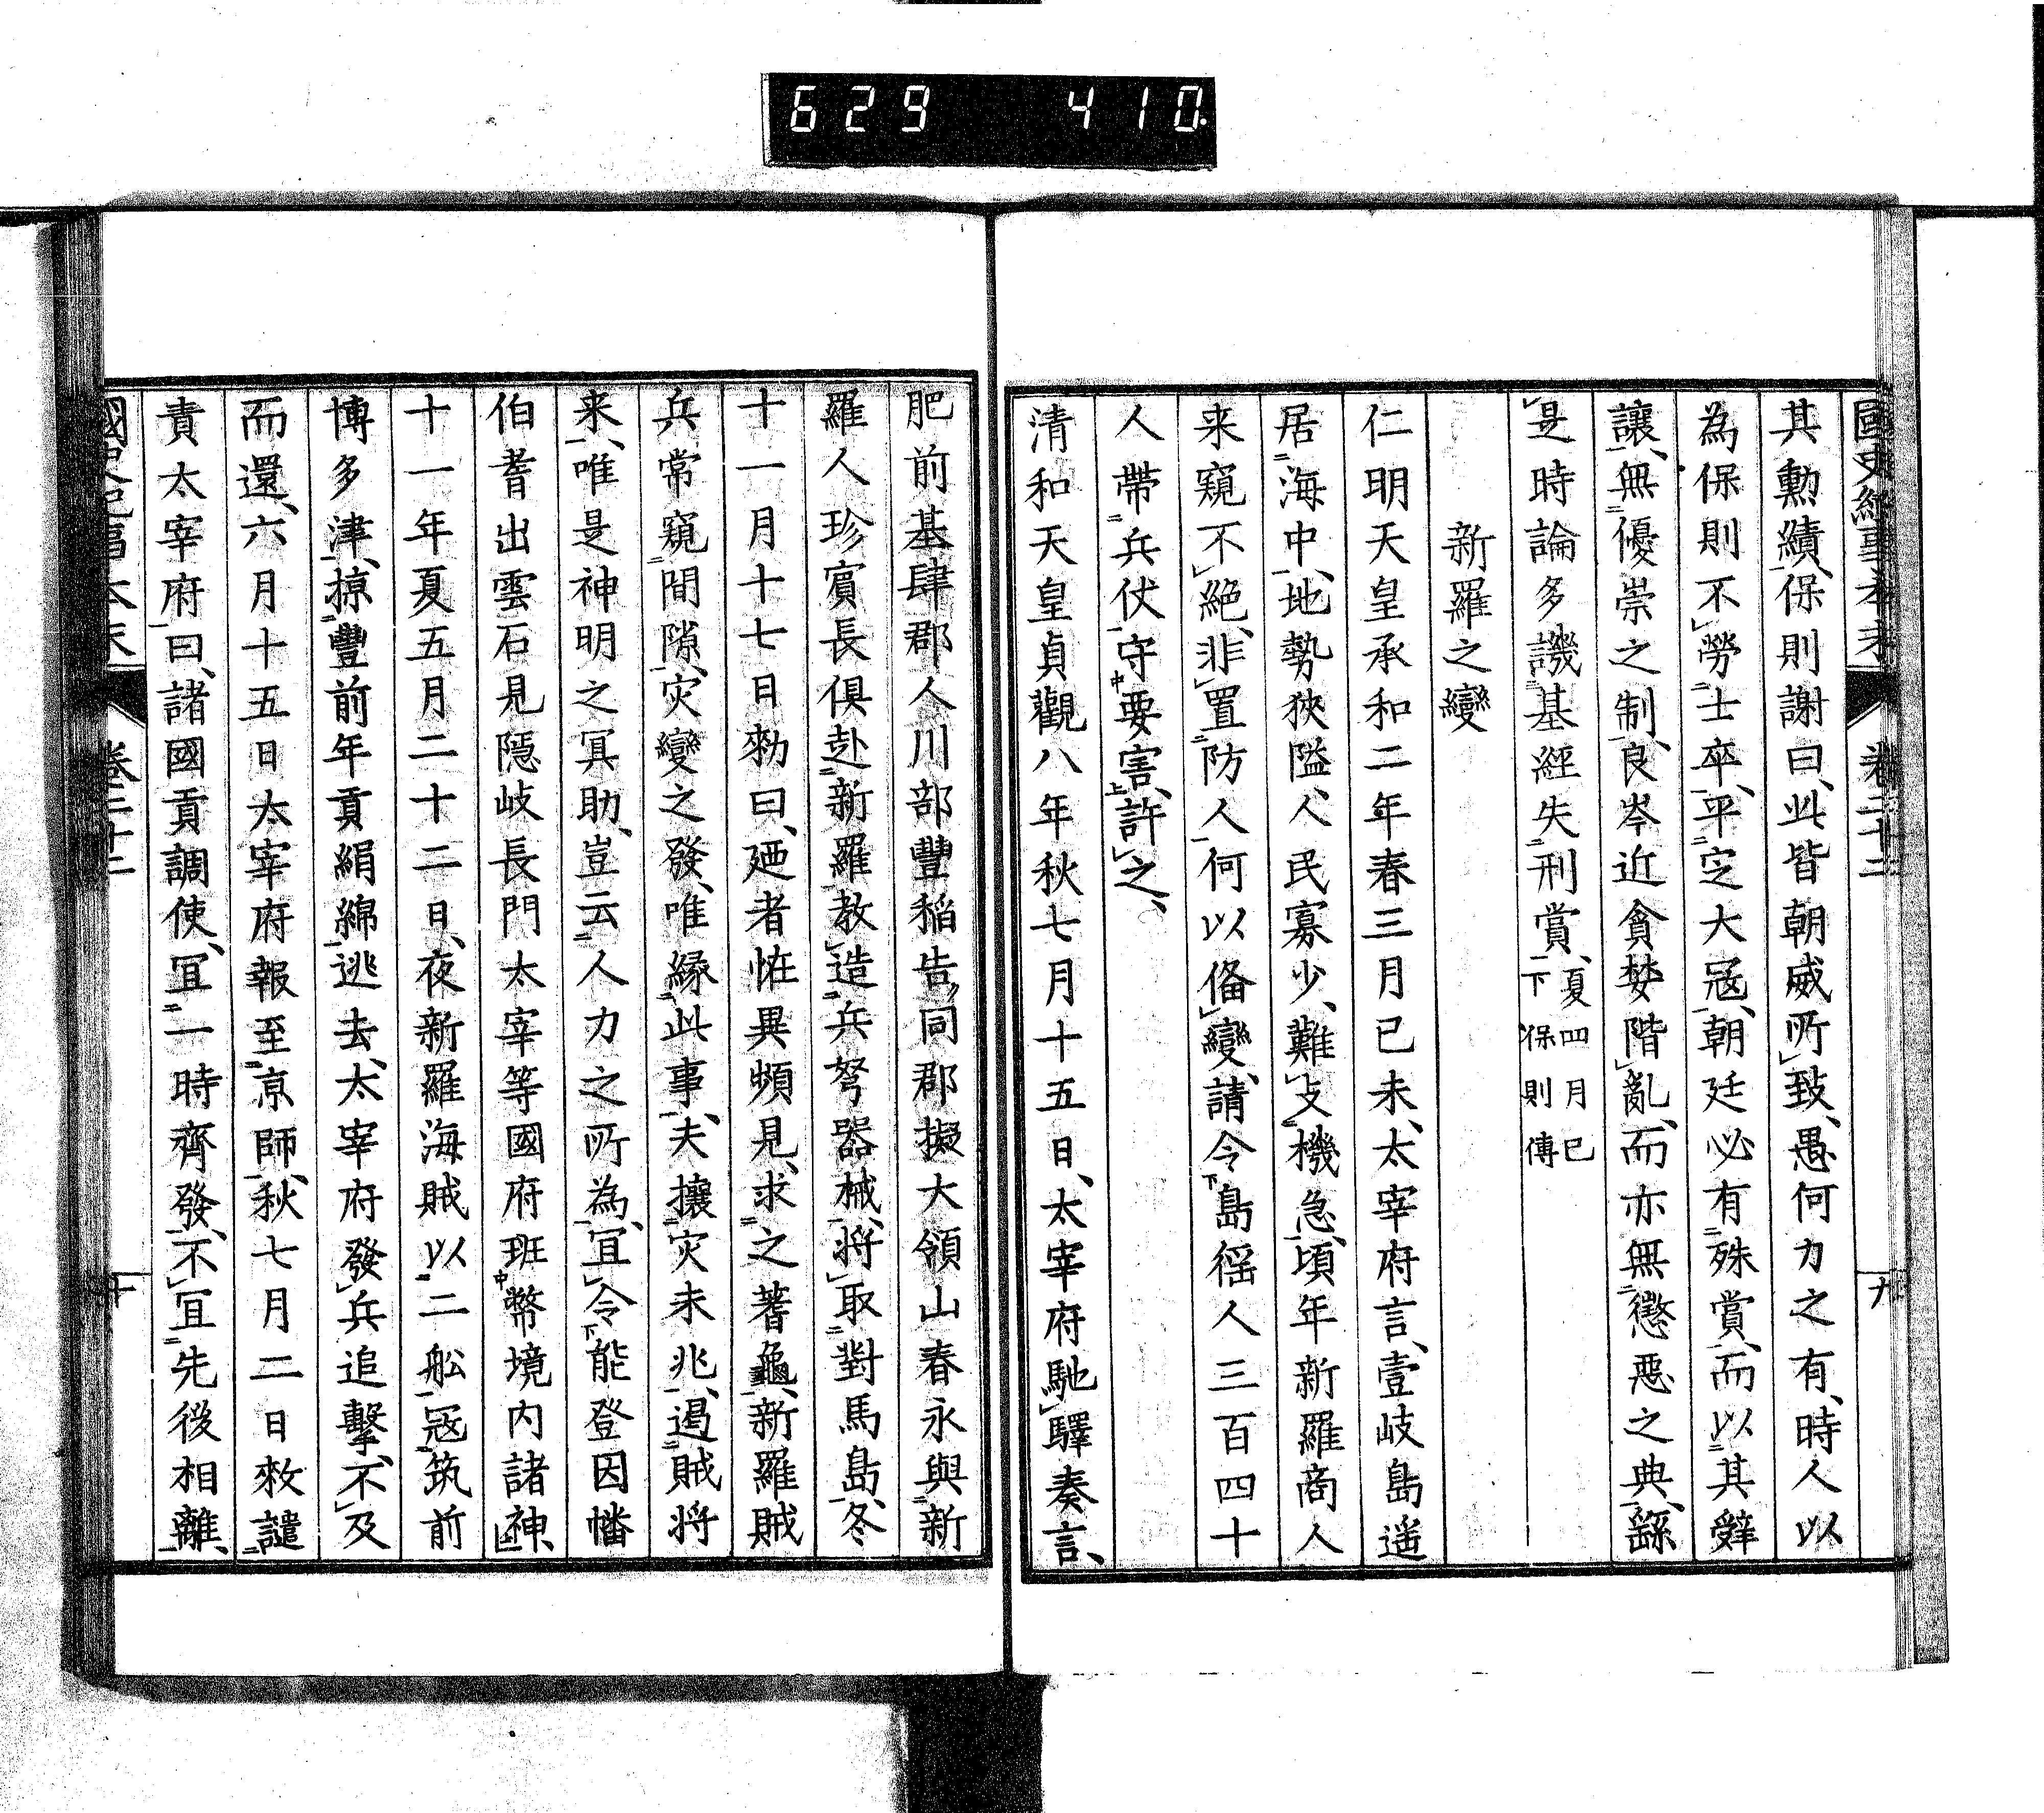 629 410
國史紀事本末 卷二十二 九
其勲績、保則謝曰、此皆朝威所致、愚何力之有、時人以
為保則不勞士卒、平定大冦、朝廷必有殊賞、而以其辭
讓、無優崇之制、良岑近貪婪階亂、而亦無懲惡之典、繇
是時論多譏基經失刑賞、夏四月已下保則傳
新羅之變
仁明天皇承和二年春三月已未、太宰府言、壹岐島遥
居海中、地勢狹隘、人民寡少、難支機急、頃年新羅商人
来窺不絕、非置防人何以備變、請令島徭人三百四十
人帶兵仗守要害、許之、
清和天皇貞觀八年秋七月十五日、太宰府馳驛奏言、
肥前基肆郡人川部豐稲告、同郡擬大領山春永與新
羅人珍賓長俱赴新羅、教造兵弩器械、将取對馬島、冬
十一月十七日勑曰、廼者恠異頻見、求之蓍龜、新羅賊
兵常窺間隙、灾變之發、唯緣此事、夫攘灾未兆、遏賊将
来、唯是神明之冥助、豈云人力之所為、宜令能登因幡
伯耆出雲石見隱岐長門太宰等國府班幣境内諸神、
十一年夏五月二十二日、夜新羅海賊以二舩冦筑前
博多津、掠豐前年貢絹綿逃去、太宰府發兵追擊、不及
而還、六月十五日太宰府報至京師、秋七月二日敕譴
責太宰府曰、諸國貢調使、宜一時齊發、不宜先後相離、
國史紀事本末 卷二十二 十